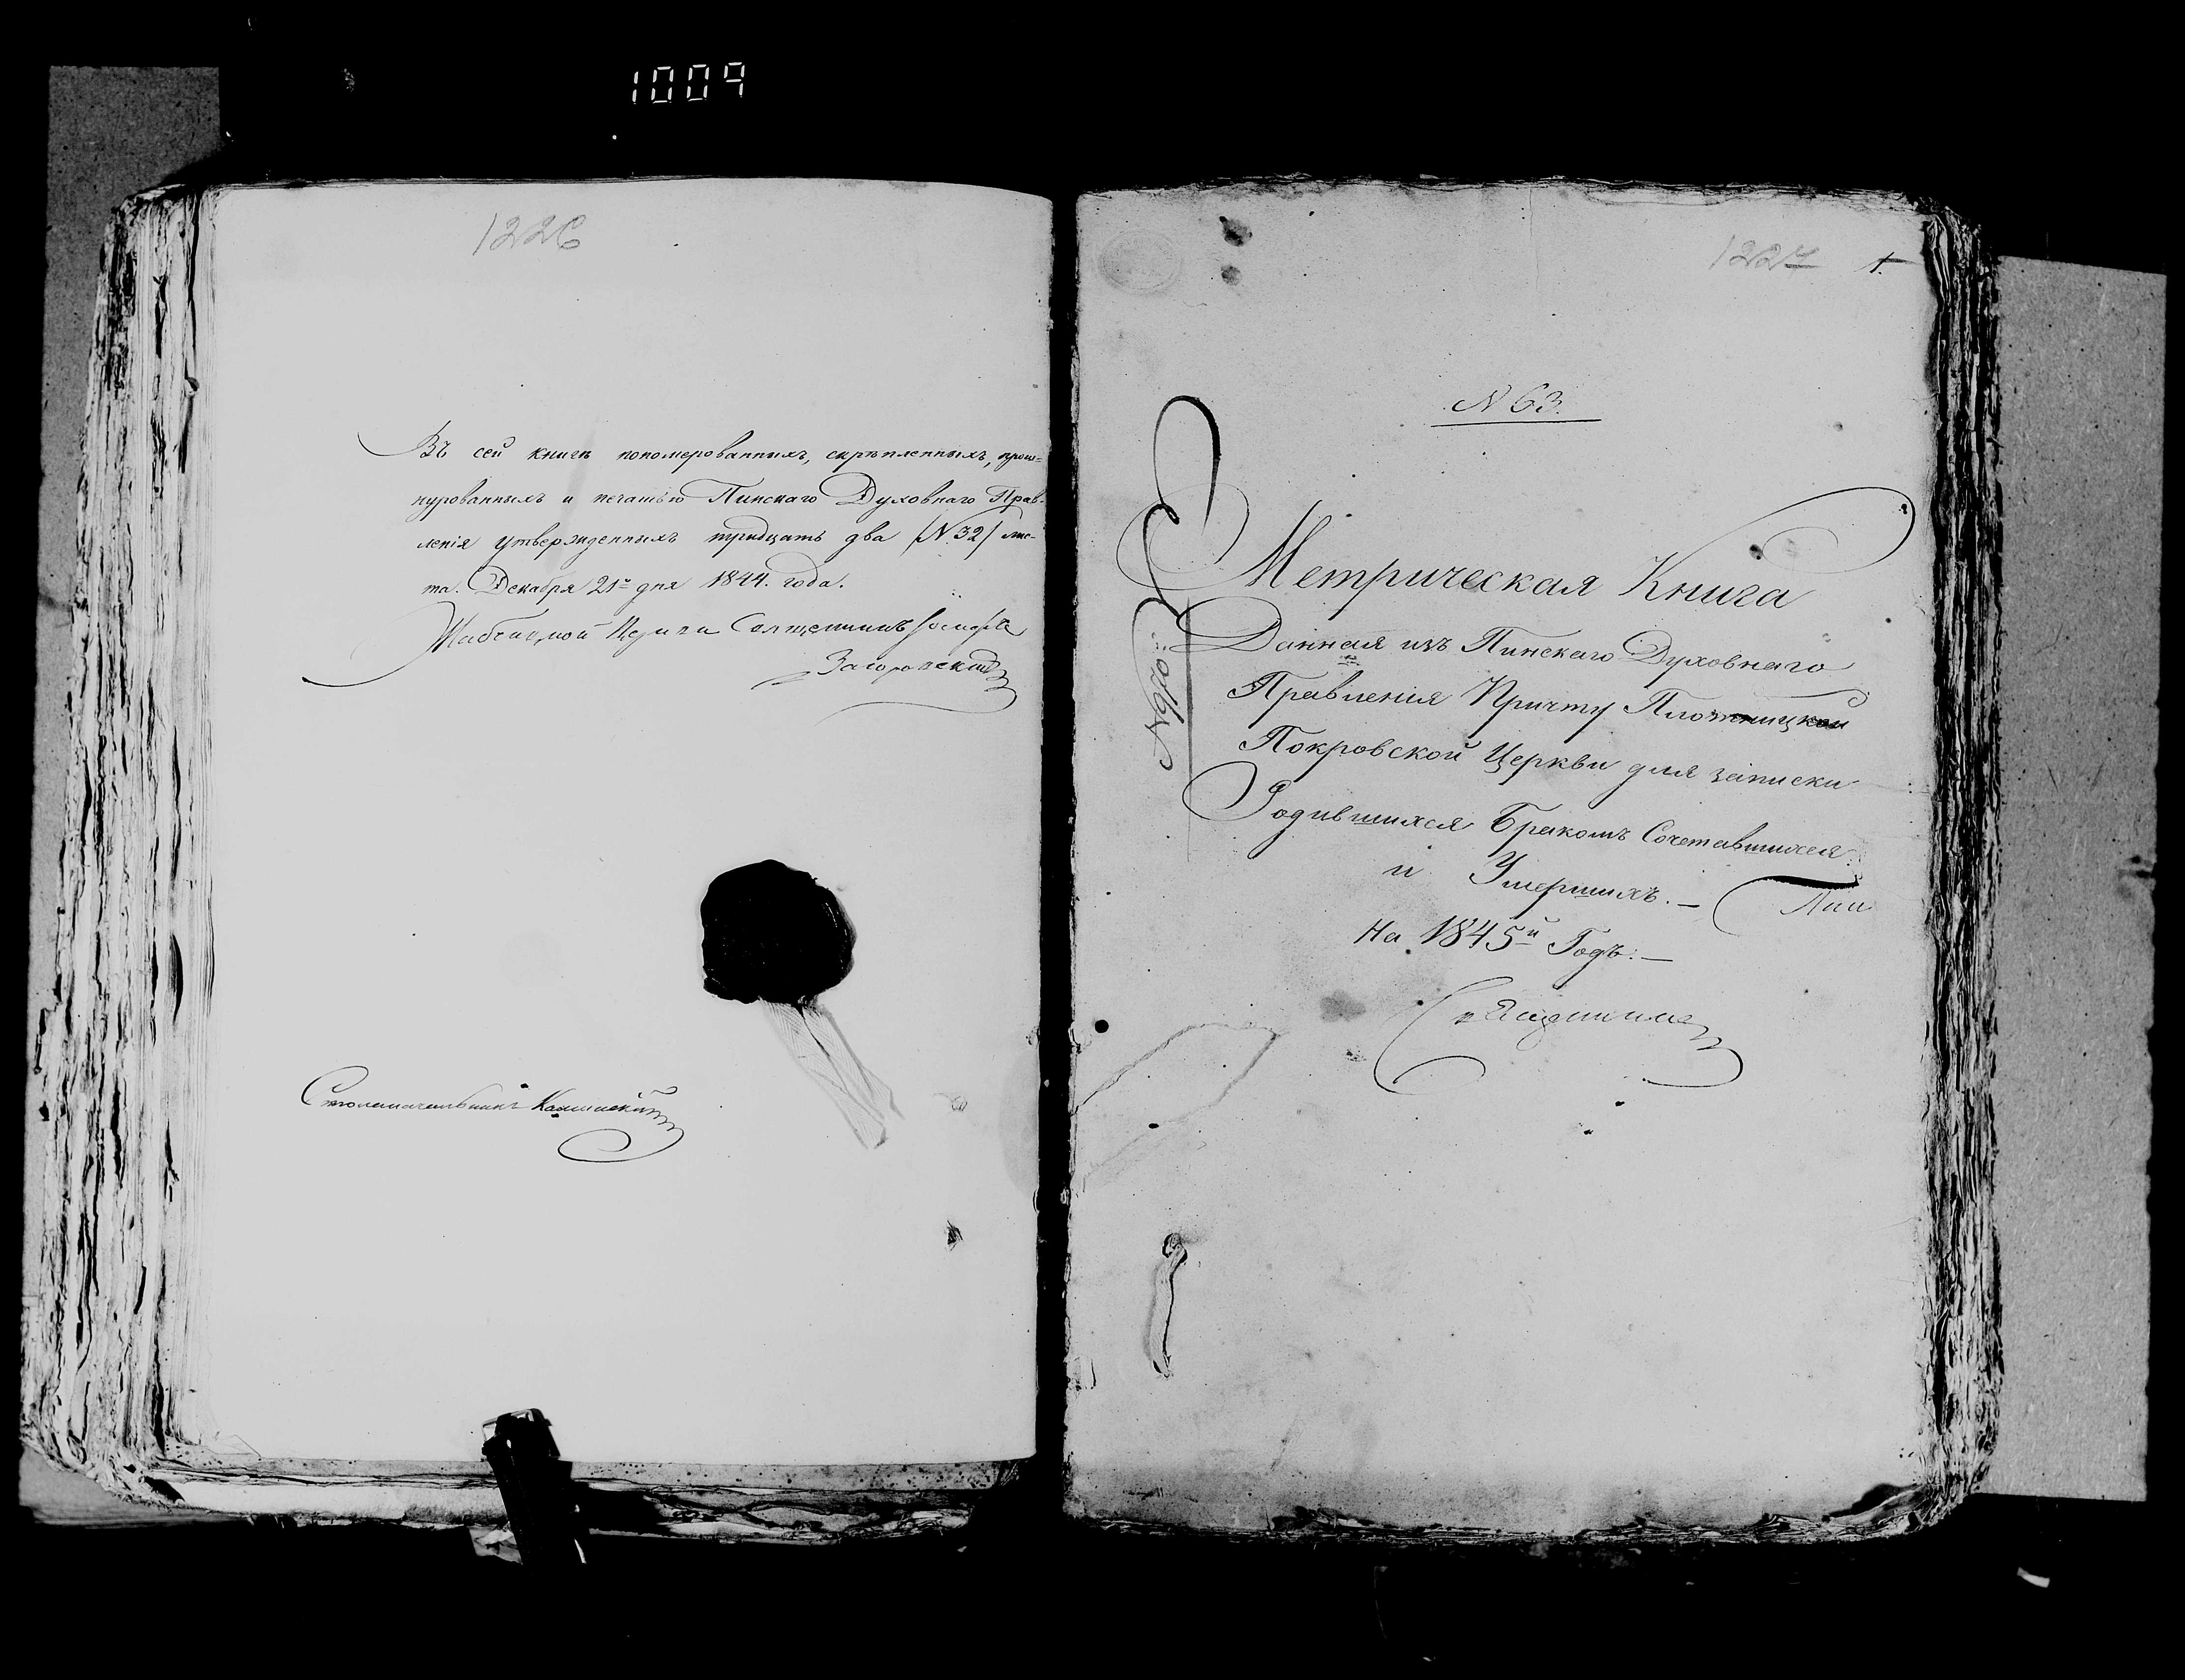 1009
1226
Въ сей книгѣ пономерованныхъ, скрѣпленныхъ, прош-
нурованныхъ и печатью Пинскаго Духовнаго Прав-
ленія утвержденныхъ тридцать два (N. 32) лис-
та. Декабря 21го дня 1844. года.
Священникъ
Загоровскій
Столоначальникъ
1227 1.
N 63.
Метрическая Книга
Данная изъ Пинскаго Духовнаго
Правленія Причту Плотницкой
Покровской Церкви для записки
Родившихся Бракомъ Сочетавшихся
и Умершихъ. —
На 1845й Годъ: —
Священникъ